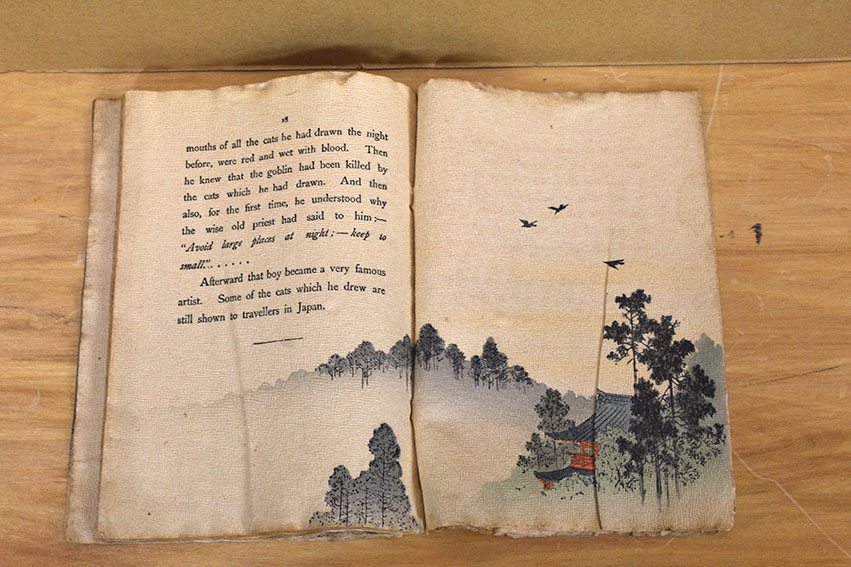 18
mouths of all the cats he had drawn the night
before, were red and wet with blood. Then
he knew that the goblin had been killed by
the cats which he had drawn. And then
also, for the first time, he understood why
the wise old priest had said to him:—
"Avoid large places at night;—keep to
small.". . . . . .
Afterward that boy became a very famous
artist. Some of the cats which he drew are
still shown to travellers in Japan.